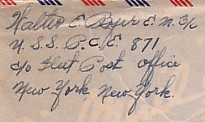 Walter E. Byer E.M. 2/c
U.S.S. P.C.E. 871
c/o Fleet Post Office
New York New York.